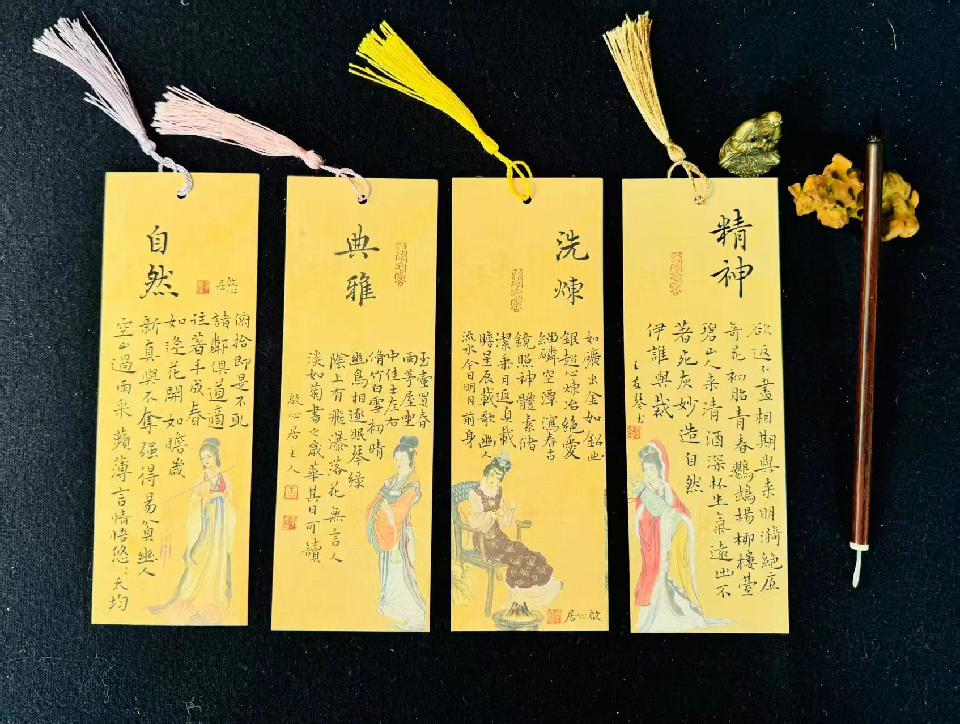 自然
俯拾即是不
諸鄰俱道適
往著手成春
如逢花開如瞻歲
新真與不奪强得易貧幽人
空山過雨采蘋薄言情悟悠:天均
典雅
玉壺買春
雨茅屋坐
中佳士左右
脩竹白雪初晴
幽鳥相逐眠琴綠
陰上有飛瀑落花無言人
淡如菊書之歲華其曰可讀
啟心居主人
洗煉
如礦出金如鉛出
銀超心煉冶絕愛
緇磷空潭瀉春古
鏡照神體素儲
潔乘月返真載
瞻星辰載歌幽人
流水今日明月前身
啟心居
精神
欲返不盡相期與來明漪絕底
奇花初胎青春鸚鵡楊柳樓臺
碧山人來清酒深杯生氣遠出不
著死灰妙造自然
伊誰與裁